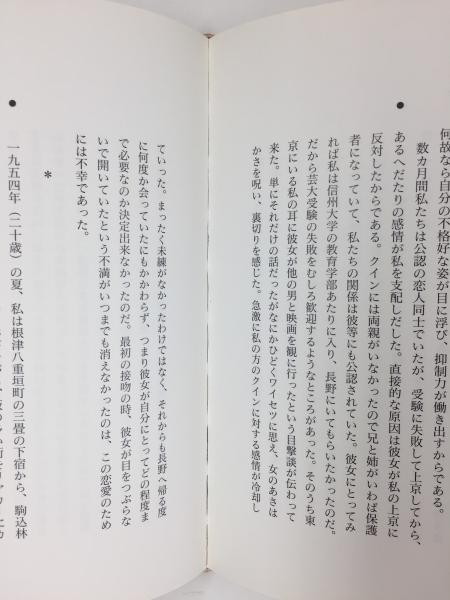 何故なら自分の不格好な姿が目に浮び、抑制力が働き出すからである。
数カ月間私たちは公認の恋人同士でいたが、受験に失敗して上京してから、
あるへだたりの感情が私を支配しだした。直接的な原因は彼女が私の上京に
反対したからである。クインには両親がいなかったので兄と姉がいわば保護
者になっていて、私たちの関係は彼等にも公認されていた。彼女にとってみ
れば私は信州大学の教育学部あたりに入り、長野にいてもらいたかったのだ。
だから芸大受験の失敗をむしろ歓迎するようなところがあった。そのうち東
京にいる私の耳に彼女が他の男と映画を観に行ったという目撃談が伝わって
来た。単にそれだけの話だったがなにかひどくワイセツに思え、女のあさは
かさを呪い、裏切りを感じた。急激に私の方のクインに対する感情が冷却し
ていった。まったく未練がなかったわけではなく、それからも長野へ帰る度
に何度か会っていたにもかかわらず、つまり彼女が自分にとってどの程度ま
で必要なのか決定出来なかったのだ。最初の接吻の時、彼女が目をつぶらな
いで開いていたという不満がいつまでも消えなかったのは、この恋愛のため
には不幸であった。
*
一九五四年（二十歳）の夏、私は根津八重垣町の三畳の下宿から、駒込林